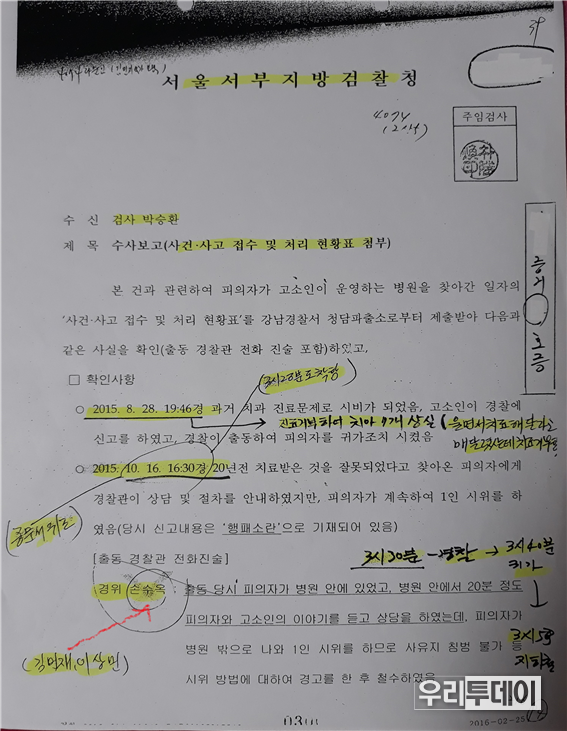 39
서울서부지방검찰청
주임검사
수 신 검사 박승환
제 목 수사보고(사건·사고 접수 및 처리 현황표 첨부)
증거 호증
본 건과 관련하여 피의자가 고소인이 운영하는 병원을 찾아간 일자의
'사건·사고 접수 및 처리 현황표'를 강남경찰서 청담파출소로부터 제출받아 다음과
같은 사실을 확인(출동 경찰관 전화 진술 포함)하였고,
□ 확인사항
(3시20분도착함)
○ 2015. 8. 28. 19:46경 과거 치과 진료문제로 시비가 되었음, 고소인이 경찰에
진료거부하여 치아 7개 상실
신고를 하였고, 경찰이 출동하여 피의자를 귀가조치 시켰음
○ 2015. 10. 16. 16:30경 20년전 치료받은 것을 잘못되었다고 찾아온 피의자에게
경찰관이 상담 및 절차를 안내하였지만, 피의자가 계속하여 1인 시위를 하
였음(당시 신고내용은 '행패소란'으로 기재되어 있음)
(공문서위조)
[출동 경찰관 전화진술]
3시20분 - 경찰 → 3시40분
귀가
경위 손수옥 : 출동 당시 피의자가 병원 안에 있었고, 병원 안에서 20분 정도
피의자와 고소인의 이야기를 듣고 상담을 하였는데, 피의자가
병원 밖으로 나와 1인 시위를 하므로 사유지 침범 불가 등
3시5분
시위 방법에 대하여 경고를 한 후 철수하였음.
(김민재, 이상민)
우리투데이
030
2016-02-25